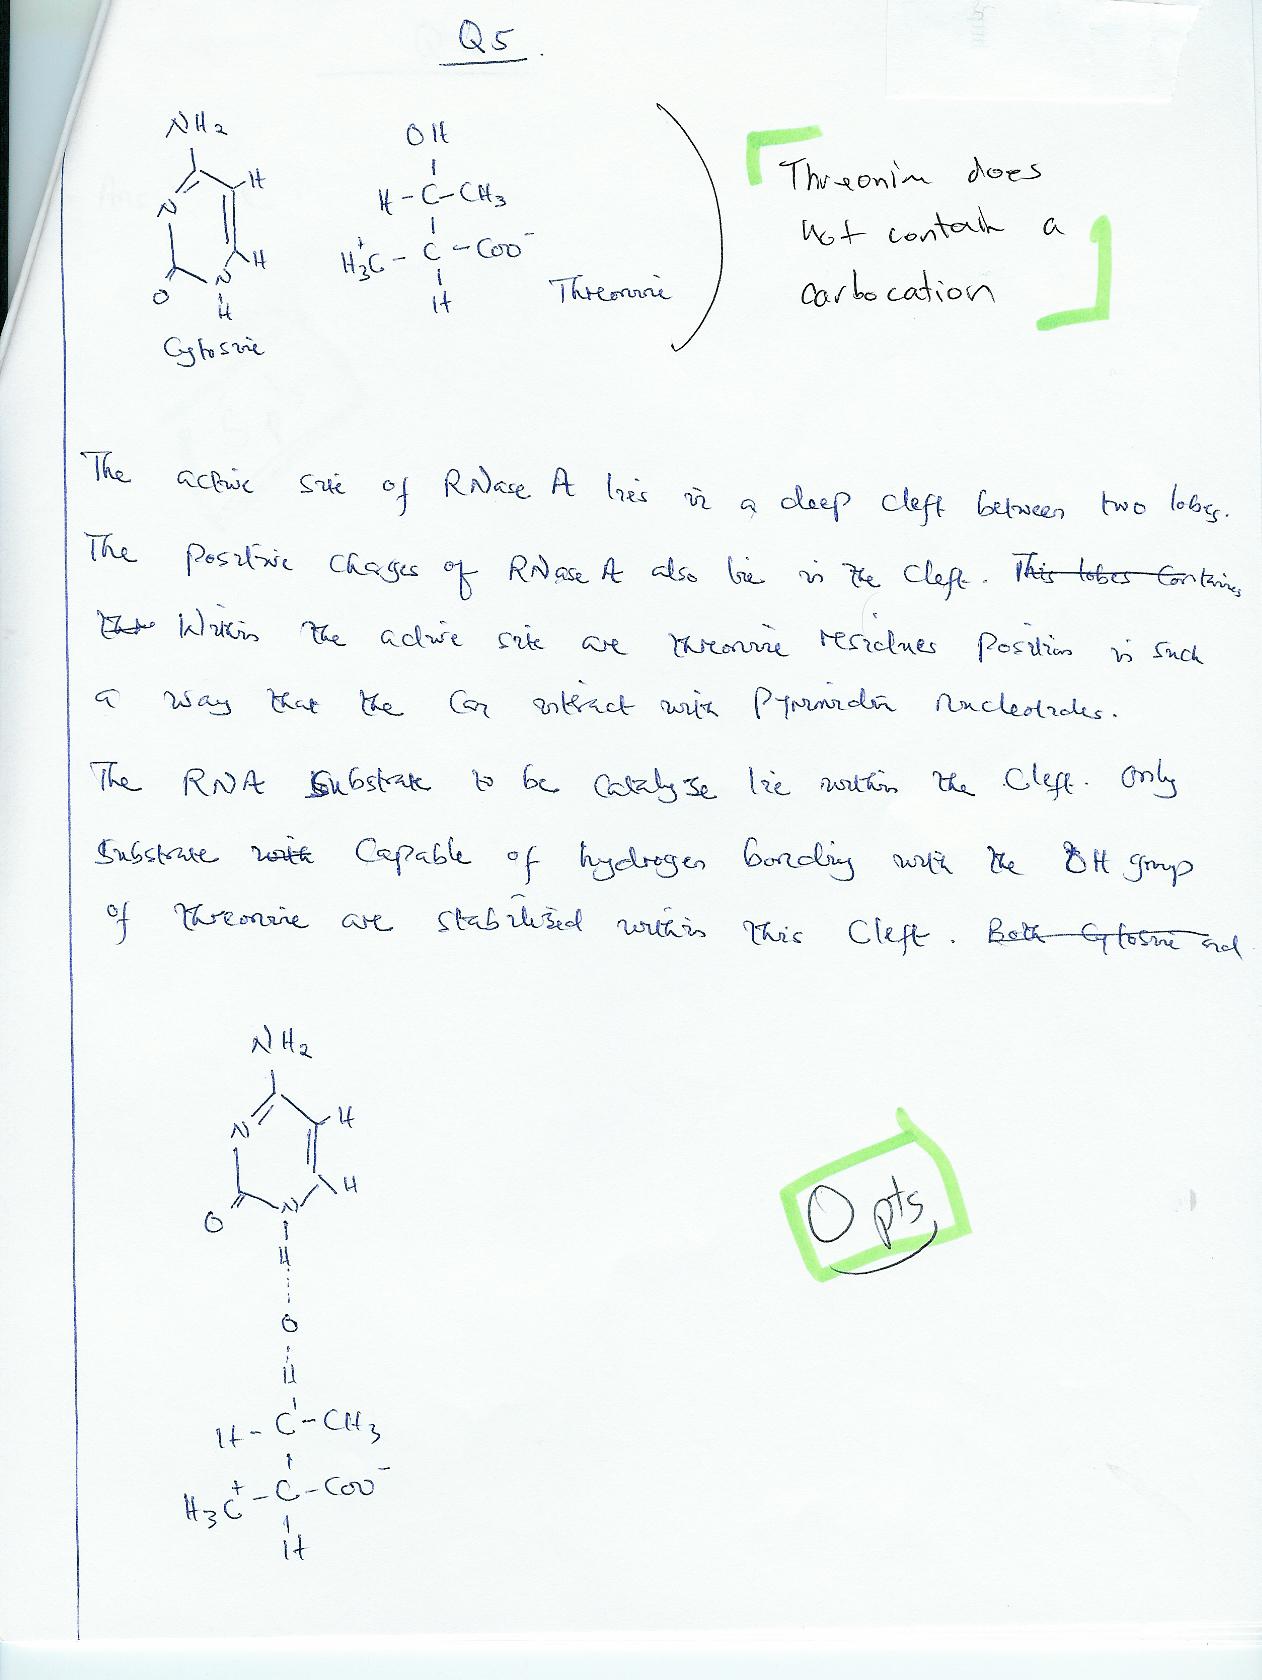 Q5
NH2
N
H
H
N
H
O
Cytosine
OH
H-C-CH3
H3C+ - C - COO-
H
Threonine
Threonin does
not contain a
carbocation
The active site of RNase A lies in a deep cleft between two lobes.
The positive charges of RNase A also lie in the cleft. This lobes contains
Within the active site are threonine residues position in such
a way that the can interact with pyrimidin nucleotides.
The RNA Substrate to be catalyse lie within the cleft. Only
Substrate with capable of hydrogen bonding with the OH group
of threonine are stabilised within this cleft. Both Cytosine and
NH2
N
H
H
N
O
H
O
H
H-C-CH3
H3C+ - C - COO-
H
0 pts